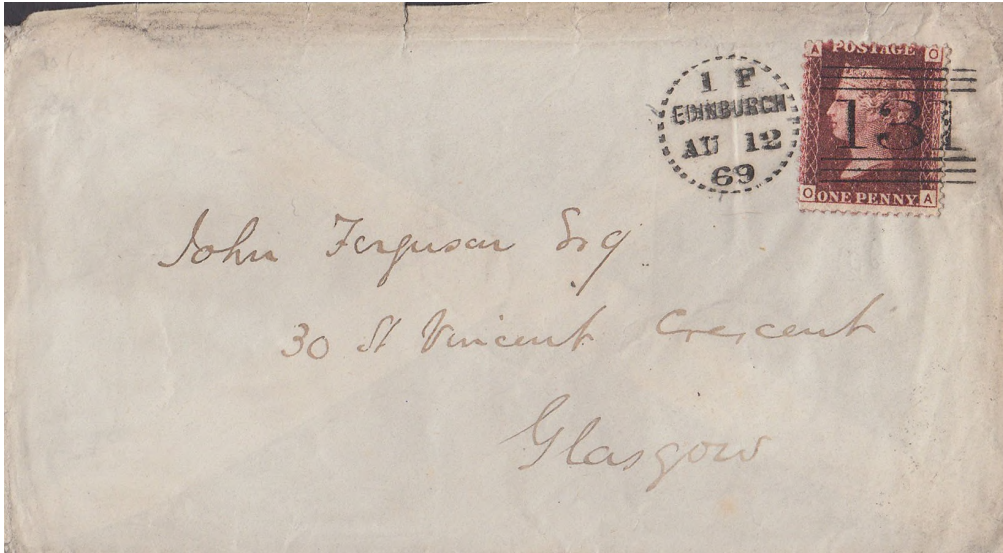 1 F
EDINBURCH
AU 12
69
A POSTAGE O
131
O ONE PENNY A
John Ferguson Esq
30 St Vincent Crescent
Glasgow